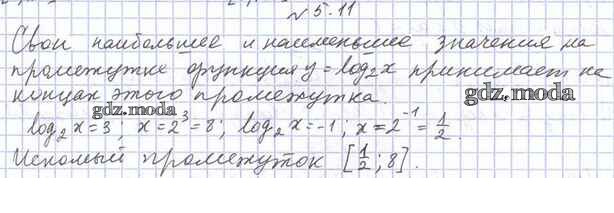 № 5.11
Свои наибольшее и наименьшее значения на
промежутке функция y = log₂x принимает на
концах этого промежутка.
gdz.moda
gdz.moda
log₂x = 3; x = 2³ = 8; log₂x = -1; x = 2⁻¹ = 1/2.
Искомый промежуток [1/2; 8].